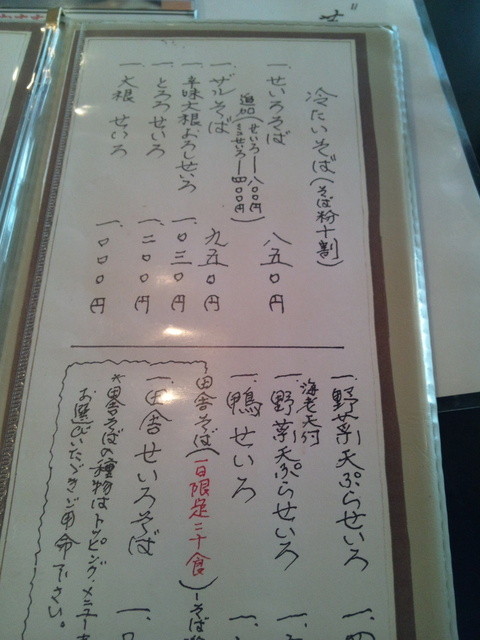 冷たいそば(そば粉十割)
一、せいろそば 八五〇円
追加(せいろ一八〇〇円
ミニせいろ一四〇〇円)
一、ザルそば 九五〇円
一、辛味大根おろしせいろ 一、〇三〇円
一、とろろせいろ 一、二〇〇円
一、大根せいろ 一、〇〇〇円
一、野菜天ぷらせいろ
海老天付
一、野菜天ぷらせいろ
一、鴨せいろ
田舎そば(一日限定二十食)
一、田舎せいろそば
*田舎そばの種物はトッピング・メニュー
お選びいただきご用命下さい。